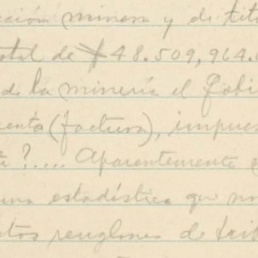 ción minera y de tít
tal de $48.509,964.
de la minería el Gobi
enta (factura), impues
? .... Aparentemente e
una estadística que no
tos renglones de